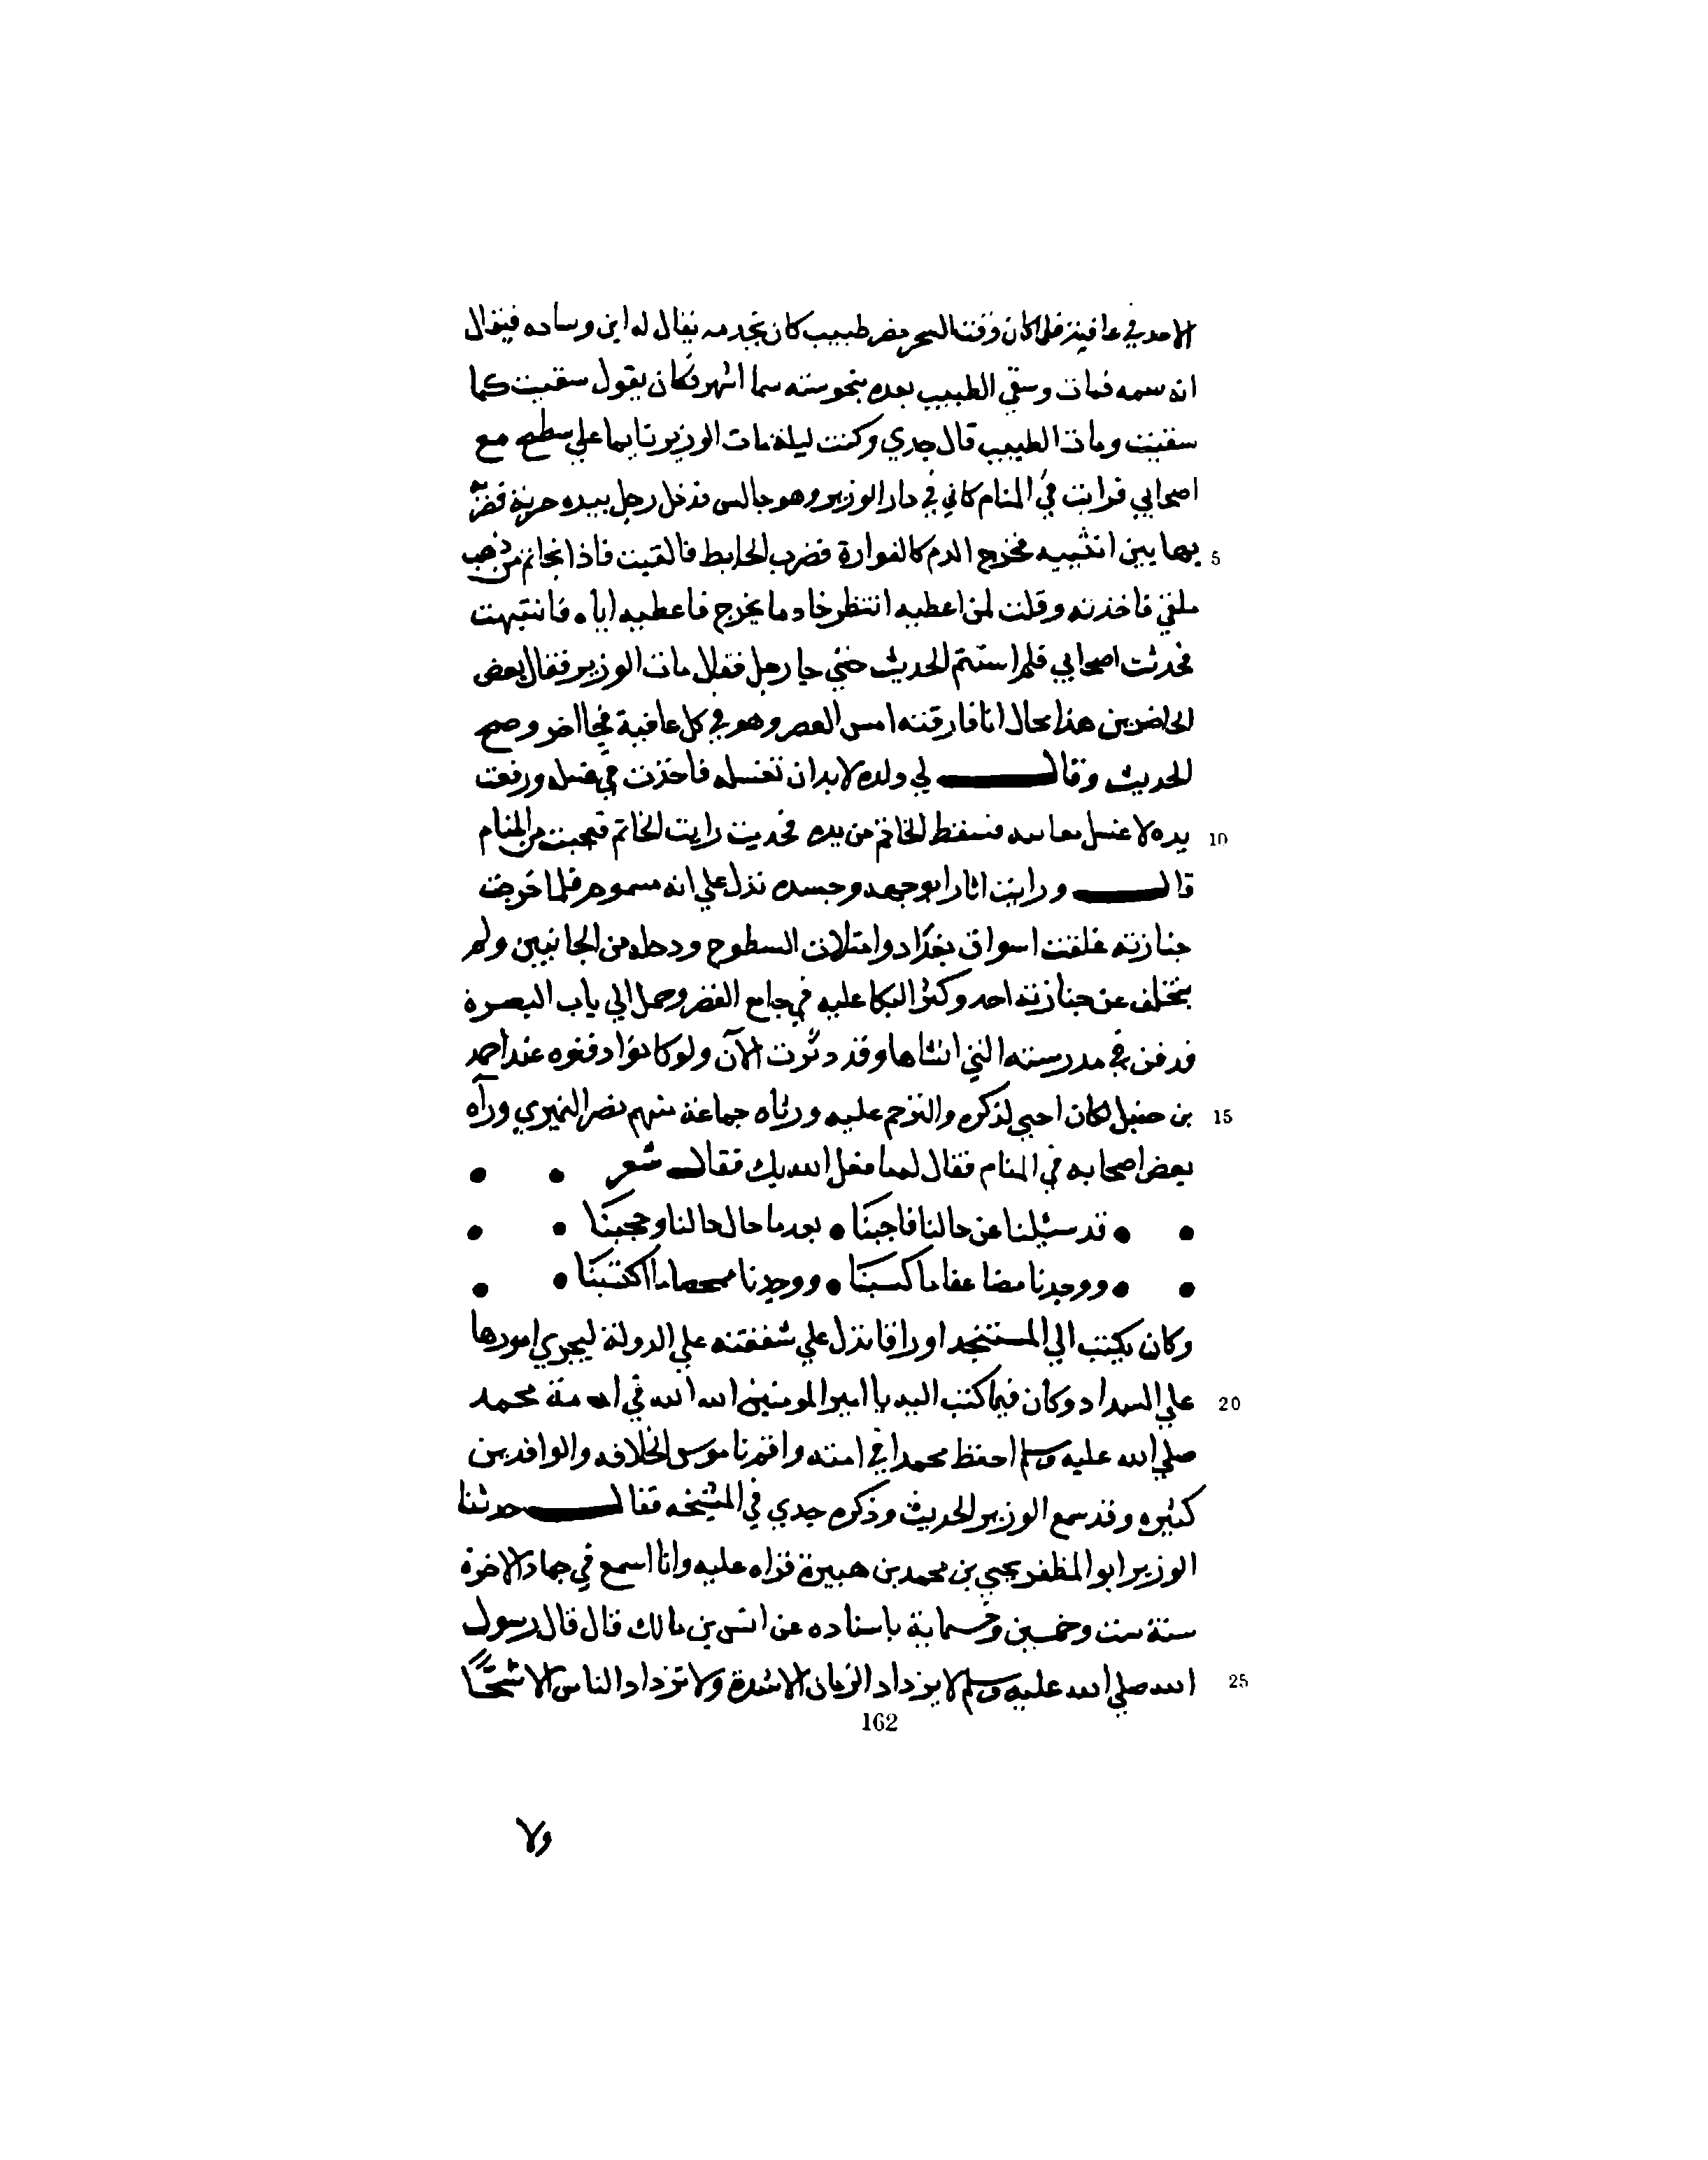 الاحد في عافية فلما كان وقت السحر حضر طبيب كان يخدمه يقال له ابن وساده فيقال
انه سمه فمات وسقي الطبيب بعده بنحو سنه سما اشهر فكان يقول سقيت كما
سقيت ومات الطبيب قال جدي وكنت ليلة مات الوزير نايما علي سطح مع
اصحابي فرايت في المنام كاني في دار الوزير وهو جالس فدخل رجل بيده حربة فضربه
5 بها بين انثييه فخرج الدم كالفوارة فضرب الحايط فالتفيت فاذا بخاتم من ذهب
ملقي فاخذته وقلت لمن اعطيه انتظر خادما يخرج فاعطيه اياه فانتبهت
فحدثت اصحابي فلم استتم الحديث حتي جا رجل فقال مات الوزير فقال بعض
الحاضرين هذا محال انا فارقته امس العصر وهو في كل عافية فجا اخر وصح
الحديث وقال لي ولده لا بد ان تغسله فاخذت في غسله ورفعت
10 يده لاغسل مغابنه فسقط الخاتم من يده فحديث رايت الخاتم تعجبت من المنام
قال ورايت اثارا بوجهه وجسده تدل علي انه مسموم فلما خرجت
جنازته غلقت اسواق بغداد وامتلات السطوح ودجله من الجانبين ولم
يتخلف عن جنازته احد وكثر البكا عليه في جامع القصر وحمل الي باب البصرة
فدفن في مدرسته التي انشاها وقد دثرت الآن ولو كانوا دفنوه عند احمد
15 بن حنبل لكان احيي لذكره والترحم عليه ورثاه جماعة منهم نصر النميري ورآه
بعض اصحابه في المنام فقال له ما فعل الله بك فقال شعر
قد سئلنا عن حالنا فاجبنا • بعد ما حال حالنا وحجبنا
ووجدنا مضاعفا ما كسبنا • ووجدنا ممحصا ما اكتسبنا
وكان يكتب الي المستنجد اوراقا تدل علي شفقته علي الدولة ليجري امورها
20 علي السداد وكان فيما كتب اليه يا امير المومنين الله الله في امة محمد
صلي الله عليه وسلم احفظ محمدا في امته واقم ناموس الخلافه والوافدين
كثيره وقد سمع الوزير الحديث وذكره جدي في المشيخه فقال حدثنا
الوزير ابو المظفر يحيي بن محمد بن هبيرة قراه عليه وانا اسمع في جماد الاخرة
سنة ست وخمسين وخمسماية باسناده عن انس بن مالك قال قال رسول
25 الله صلي الله عليه وسلم لا يزداد الزمان الا شدة ولا تزداد الناس الا شحًّا
162
ولا